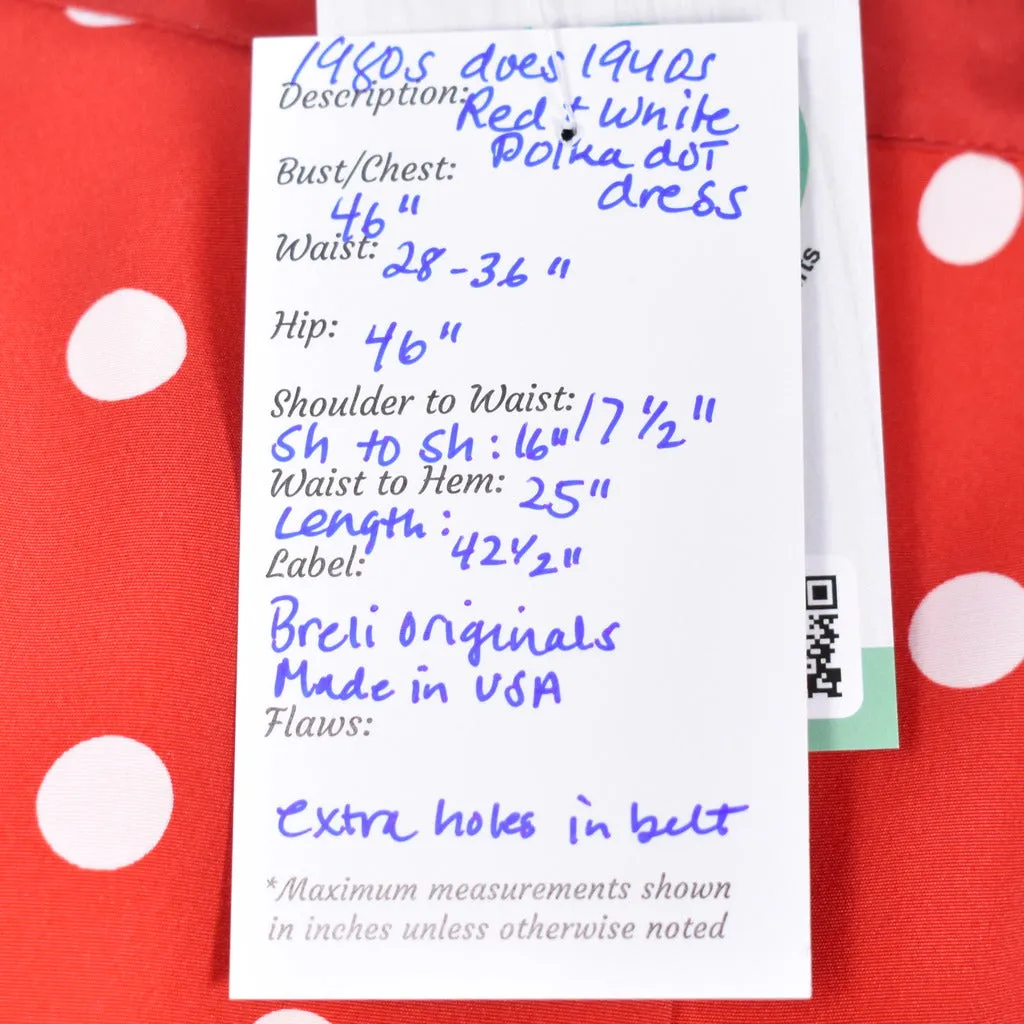 1980s does 1940s
Description: Red + White
Polka dot
dress
Bust/Chest:
46"
Waist: 28-36"
Hip: 46"
Shoulder to Waist: 17 1/2"
Sh to Sh: 16"
Waist to Hem: 25"
Length: 42 1/2"
Label:
Breli Originals
Made in USA
Flaws:
extra holes in belt
*Maximum measurements shown
in inches unless otherwise noted